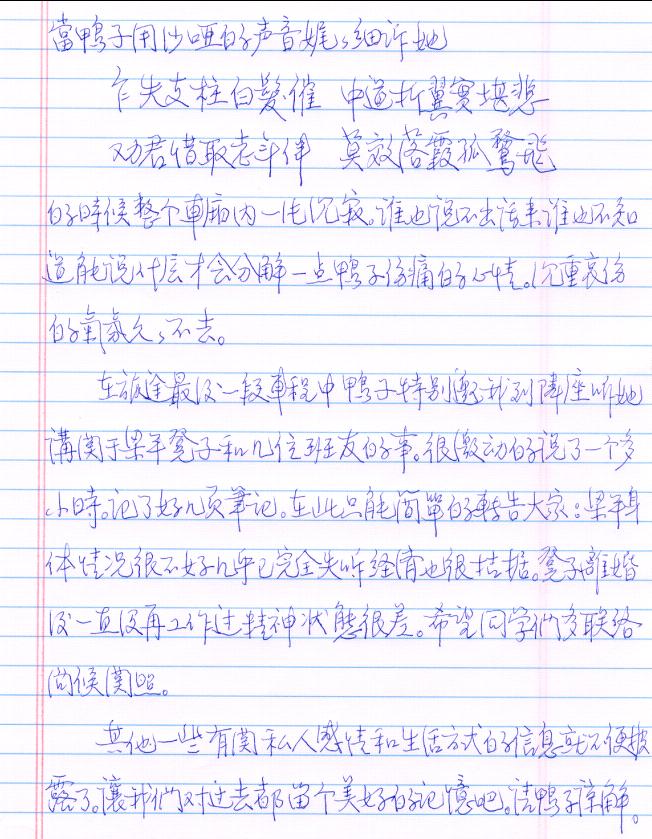 當鴨子用沙哑的声音娓々细诉她
乍失支柱白髮催 中道折翼實堪悲
劝君惜取老年伴 莫效落霞孤鶩飛
的時候整个車廂内一片沉寂。谁也说不出话来谁也不知
道能说什么才会分解一点鴨子伤痛的心情。沉重哀伤
的氣氛久々不去。
在旅途最後一段車程中鴨子特别邀我到隣座听她
講関于梁平凳子和几位班友的事。很激动的说了一个多
小時。记了好几页筆记。在此只能简單的轉告大家：梁平身
体情况很不好几乎已完全失听经濟也很拮据。凳子離婚
後一直没再工作过精神状態很差。希望同学們多联络
问候関照。
其他一些有関私人感情和生活方式的信息就不便披
露了。讓我們对过去都留个美好的记憶吧。请鴨子諒解。